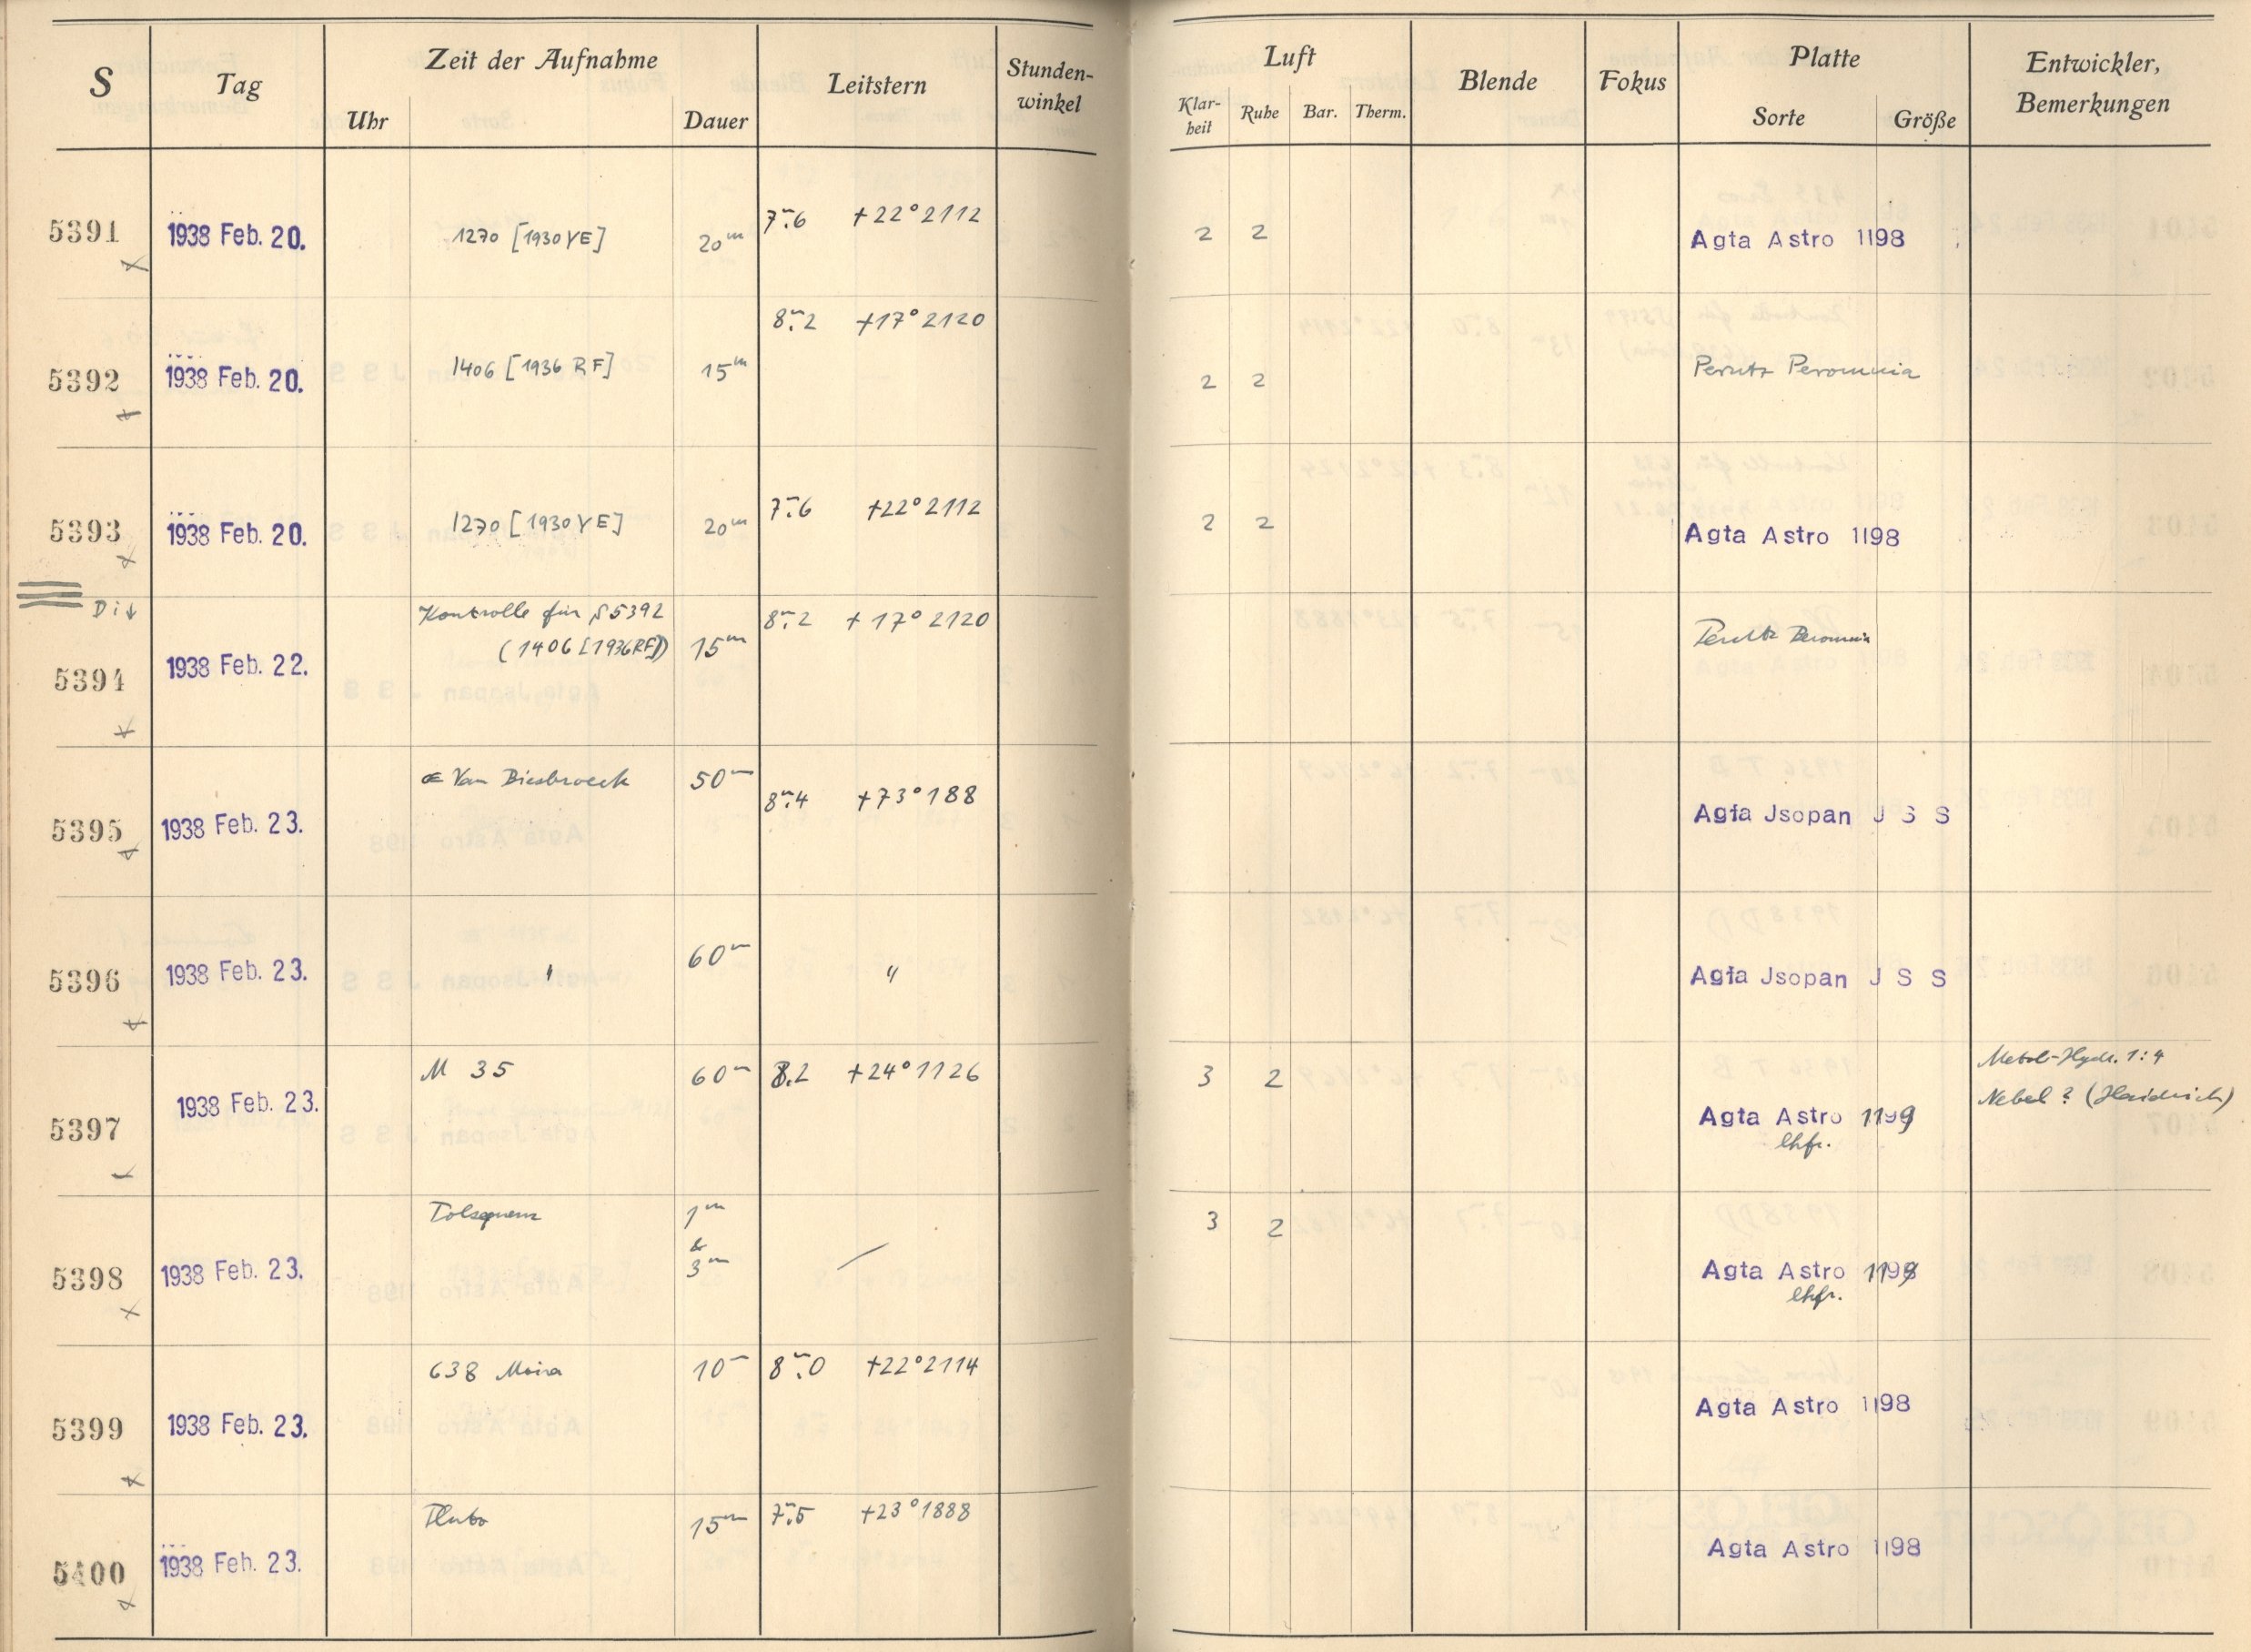 S Tag Zeit der Aufnahme Leitstern Stunden-winkel Luft Blende Fokus Platte Entwickler, Bemerkungen
Uhr Dauer Klar-heit Ruhe Bar. Therm. Sorte Größe
5391 1938 Feb. 20. 1270 [1930 YE] 20m 7m.6 +22°2112 2 2 Agfa Astro 1198
5392 1938 Feb. 20. 1406 [1936 RF] 15m 8m.2 +17°2120 2 2 Perutz Peromnia
5393 1938 Feb. 20. 1270 [1930 YE] 20m 7m.6 +22°2112 2 2 Agfa Astro 1198
Di↓
Kontrolle für S5392
5394 1938 Feb. 22. (1406 [1936 RF]) 15m 8m.2 +17°2120 Perutz Peromnia
5395 1938 Feb. 23. Van Biesbroeck 50m 8m.4 +73°188 Agfa Jsopan J S S
5396 1938 Feb. 23. " 60m " Agfa Jsopan J S S
5397 1938 Feb. 23. M 35 60m 8.2 +24°1126 3 2 Agfa Astro 1199 Metol-Hydr. 1:4
lhfr. Nebel? (Haidrich)
5398 1938 Feb. 23. Polsequenz 1m & 3m / 3 2 Agfa Astro 1199
lhfr.
5399 1938 Feb. 23. 638 Moira 10m 8m.0 +22°2114 Agfa Astro 1198
5400 1938 Feb. 23. Pluto 15m 7m.5 +23°1888 Agfa Astro 1198